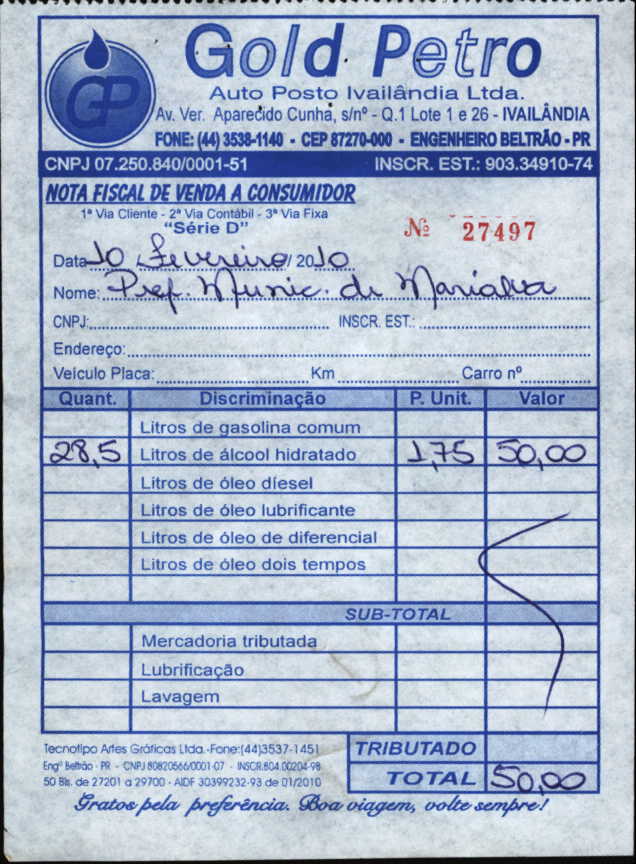 GP
Gold Petro
Auto Posto Ivailândia Ltda.
Av. Ver. Aparecido Cunha, s/nº - Q.1 Lote 1 e 26 - IVAILÂNDIA
FONE: (44) 3538-1140 - CEP 87270-000 - ENGENHEIRO BELTRÃO - PR
CNPJ 07.250.840/0001-51 INSCR. EST.: 903.34910-74
NOTA FISCAL DE VENDA A CONSUMIDOR
1ª Via Cliente - 2ª Via Contábil - 3ª Via Fixa
"Série D" Nº 27497
Data 10 / Fevereiro / 2010
Nome: Pref. Munic. de Marialva
CNPJ: INSCR. EST.:
Endereço:
Veículo Placa: Km Carro nº
Quant. Discriminação P. Unit. Valor
Litros de gasolina comum
28,5 Litros de álcool hidratado 1,75 50,00
Litros de óleo díesel
Litros de óleo lubrificante
Litros de óleo de diferencial
Litros de óleo dois tempos
SUB-TOTAL
Mercadoria tributada
Lubrificação
Lavagem
Tecnotipo Artes Gráficas Ltda.-Fone:(44)3537-1451 TRIBUTADO
Engº Beltrão - PR - CNPJ 80820566/0001-07 - INSCR.804.00204-98
50 Bls. de 27201 a 29700 - AIDF 30399232-93 de 01/2010 TOTAL 50,00
Gratos pela preferência. Boa viagem, volte sempre!